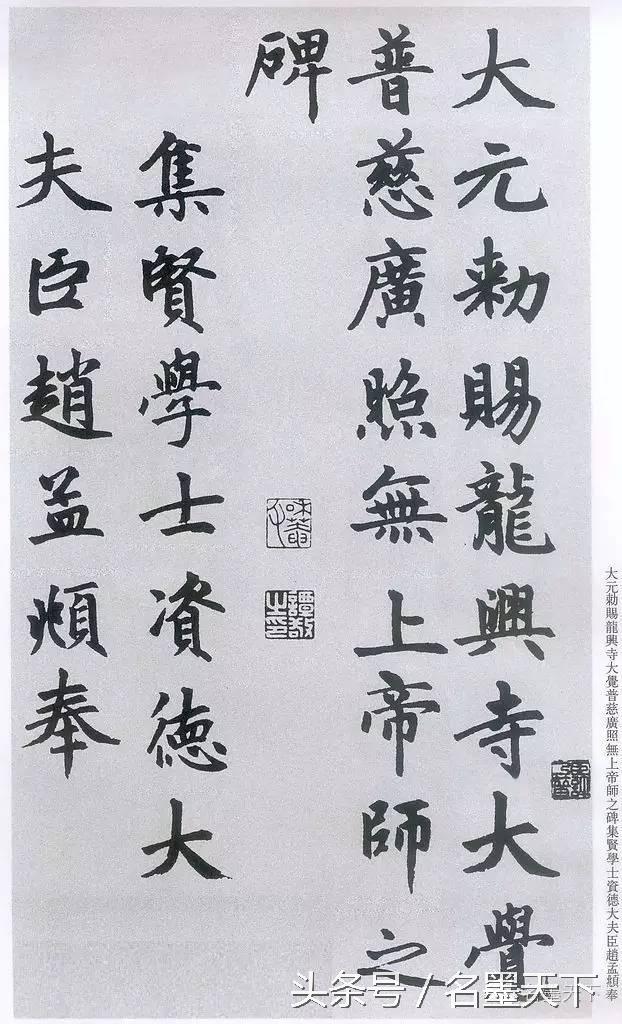 大元勅賜龍興寺大覺
普慈廣照無上帝師之
碑
集賢學士資德大
夫臣趙孟頫奉
大元勅賜龍興寺大覺普慈廣照無上帝師之碑集賢學士資德大夫臣趙孟頫奉
头条号 / 名墨天下